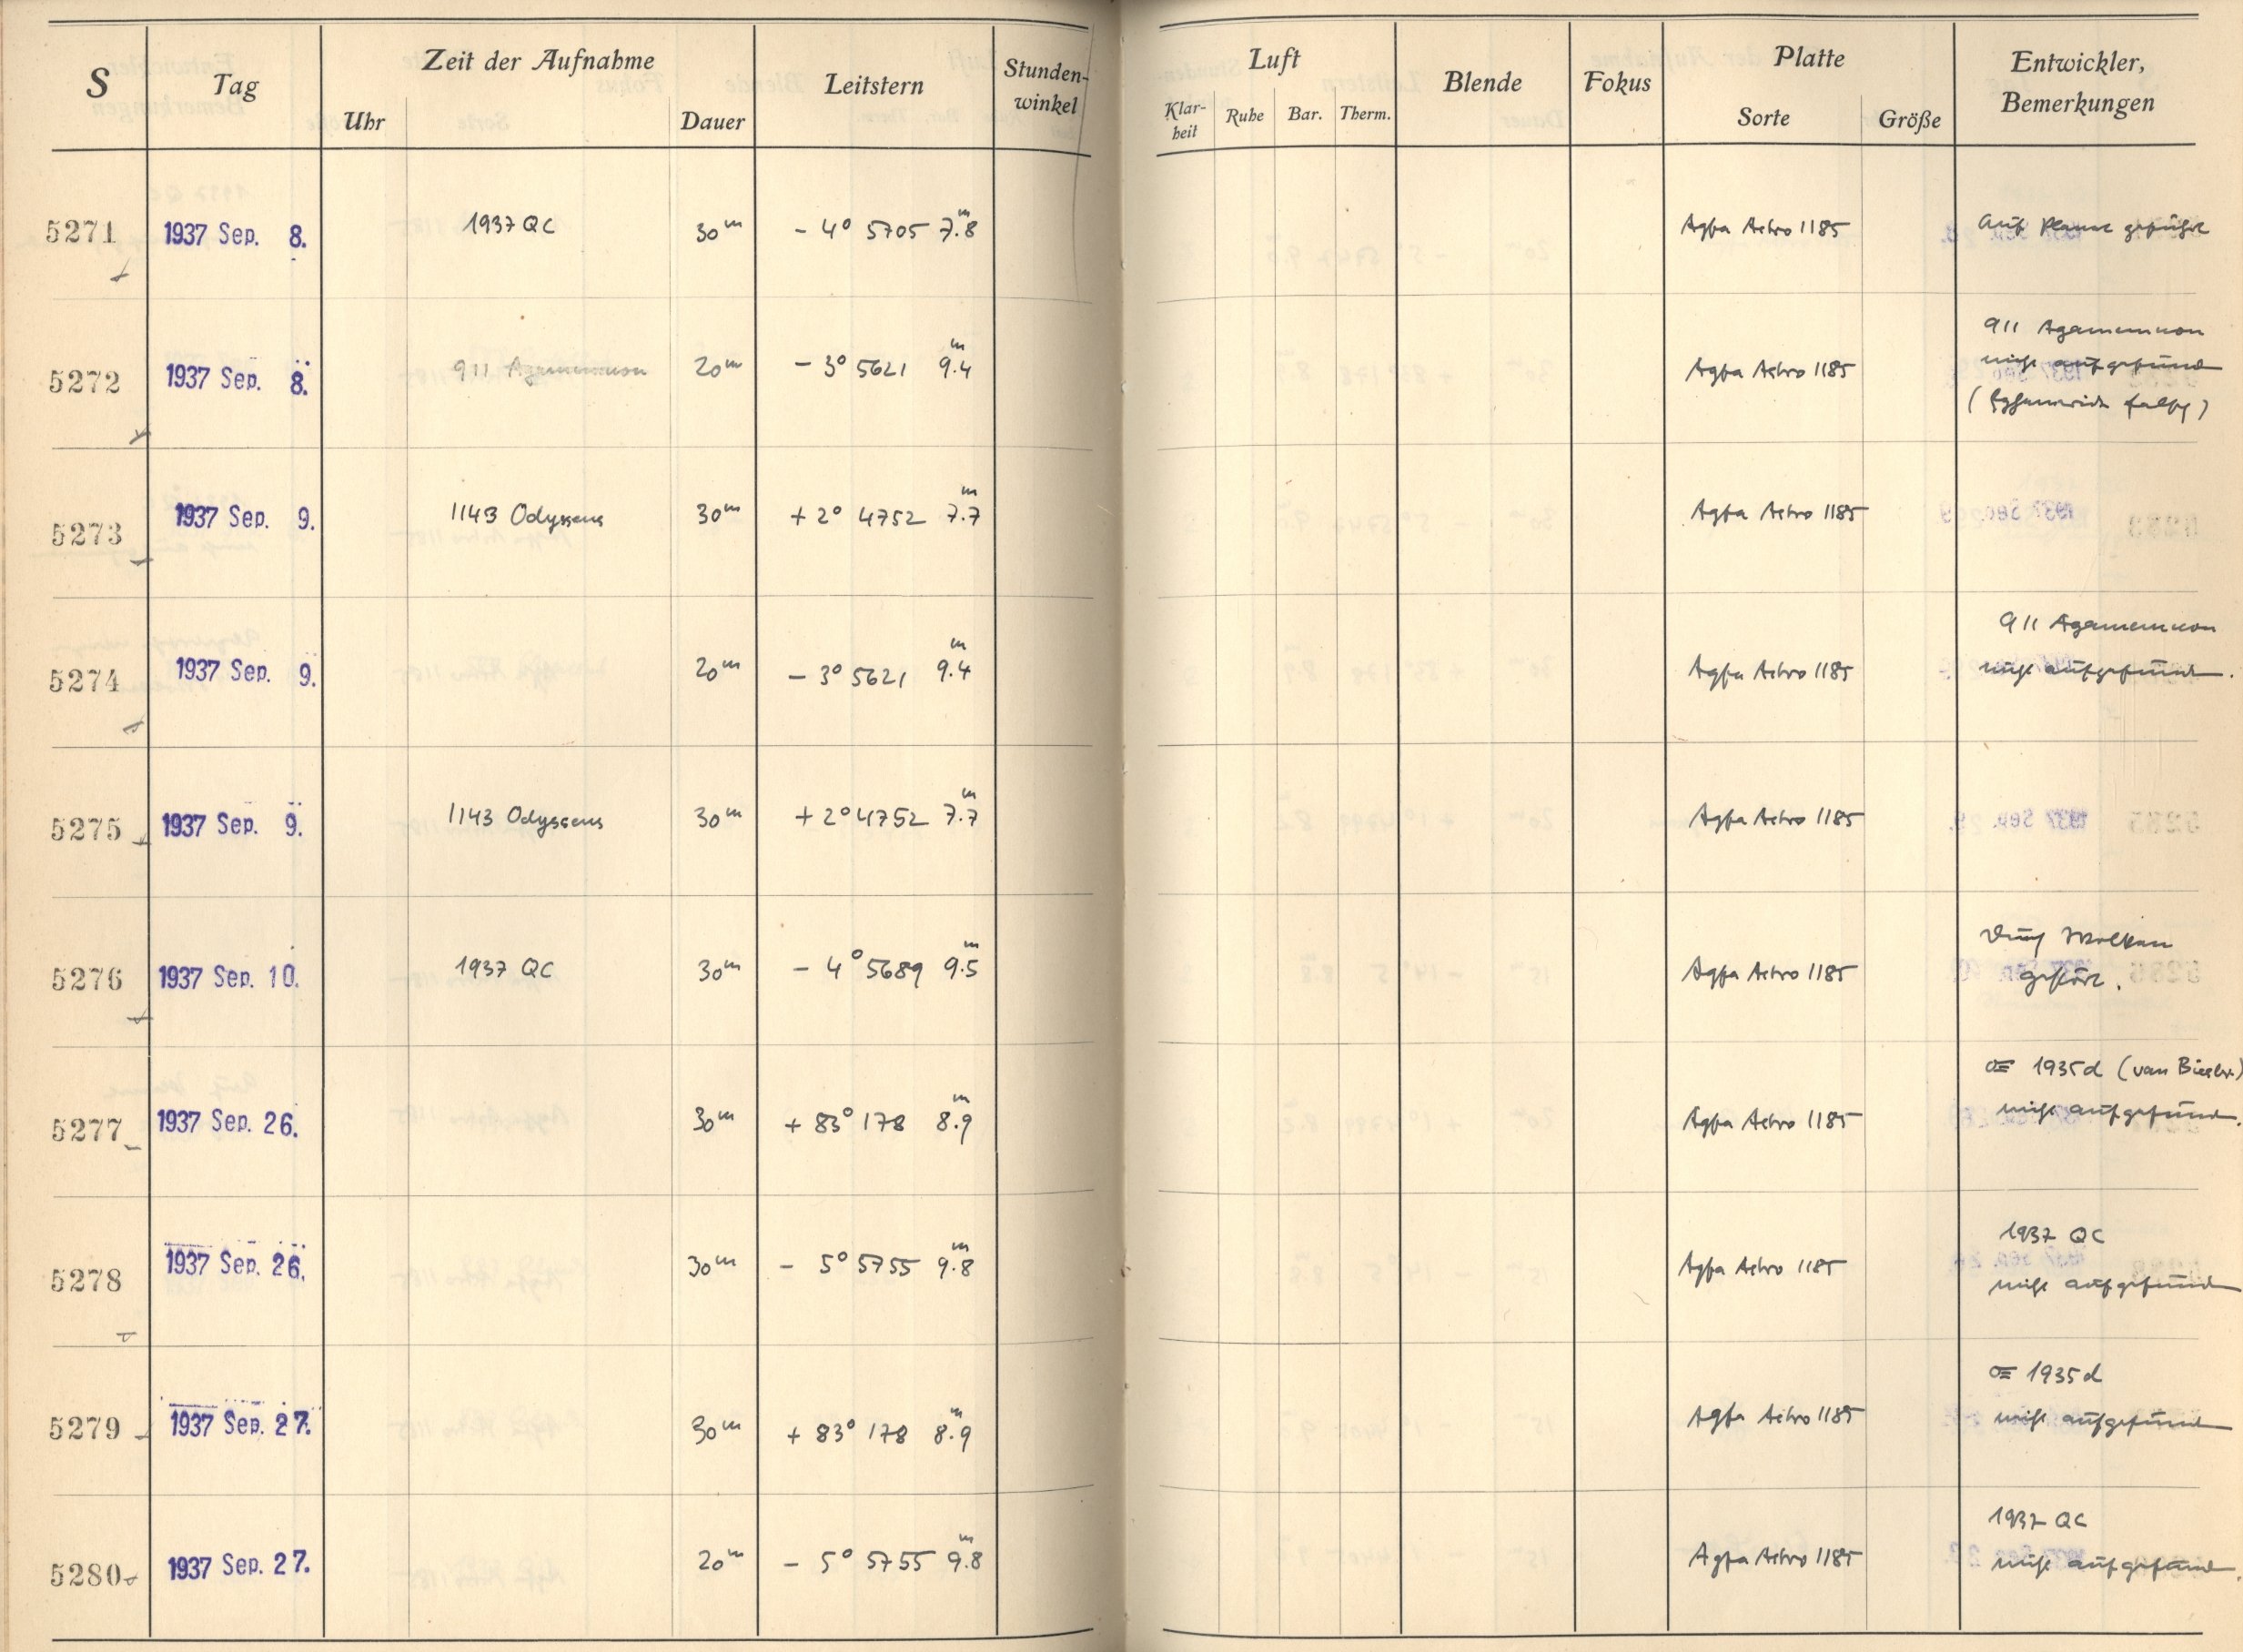 S Tag Zeit der Aufnahme Leitstern Stunden-winkel Luft Blende Fokus Platte Entwickler, Bemerkungen
Uhr Dauer Klar-heit Ruhe Bar. Therm. Sorte Größe
5271 1937 Sep. 8. 1937 QC 30m - 4° 5705 7.8m Agfa Astro 1185 Auf Planet geführt
5272 1937 Sep. 8. 911 Agamemnon 20m - 3° 5621 9.4m Agfa Astro 1185 911 Agamemnon
nicht aufgefunden
(Ephemeride falsch)
5273 1937 Sep. 9. 1143 Odysseus 30m + 2° 4752 7.7m Agfa Astro 1185
5274 1937 Sep. 9. 20m - 3° 5621 9.4m Agfa Astro 1185 911 Agamemnon
nicht aufgefunden.
5275 1937 Sep. 9. 1143 Odysseus 30m + 2° 4752 7.7m Agfa Astro 1185
5276 1937 Sep. 10. 1937 QC 30m - 4° 5689 9.5m Agfa Astro 1185 Durch Wolken
gestört.
5277 1937 Sep. 26. 30m + 83° 178 8.9m Agfa Astro 1185 1935d (van Biesbr.)
nicht aufgefunden.
5278 1937 Sep. 26. 30m - 5° 5755 9.8m Agfa Astro 1185 1937 QC
nicht aufgefunden
5279 1937 Sep. 27. 30m + 83° 178 8.9m Agfa Astro 1185 1935d
nicht aufgefunden
5280 1937 Sep. 27. 20m - 5° 5755 9.8m Agfa Astro 1185 1937 QC
nicht aufgefunden.